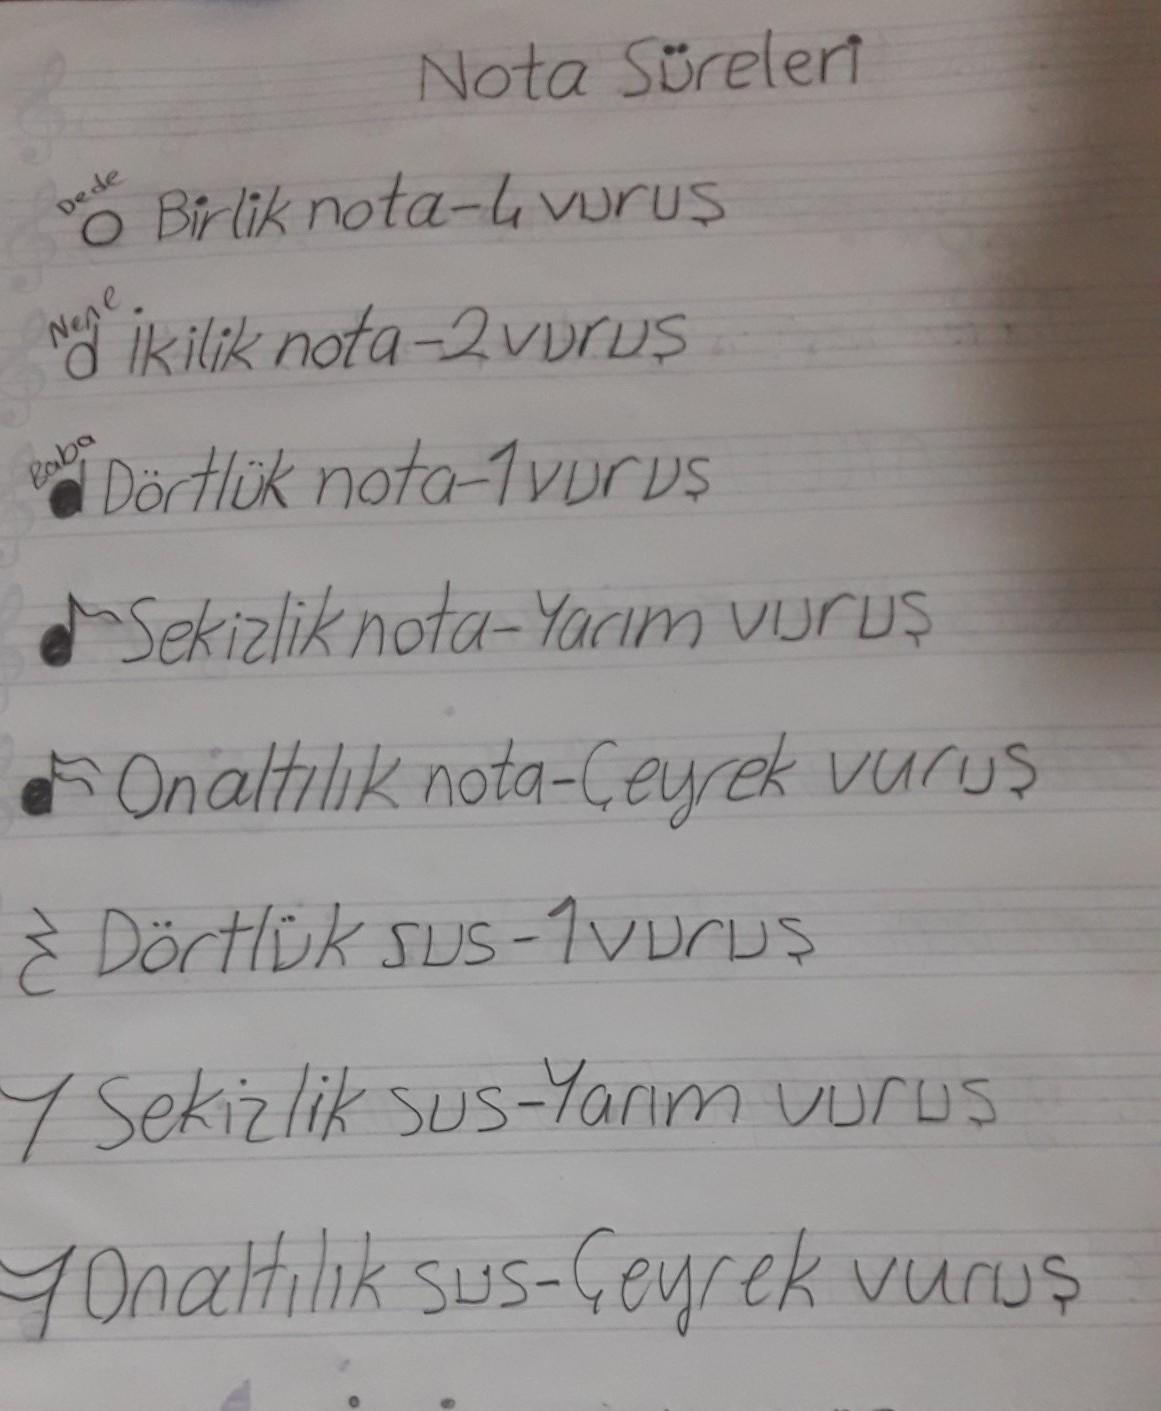 Nota Süreleri
Dede
Birlik nota-4 vuruş
Nene
İkilik nota-2 vuruş
Baba
Dörtlük nota-1 vuruş
Sekizlik nota-Yarım vuruş
Onaltılık nota-Çeyrek vuruş
Dörtlük sus-1 vuruş
Sekizlik sus-Yarım vuruş
Onaltılık sus-Çeyrek vuruş